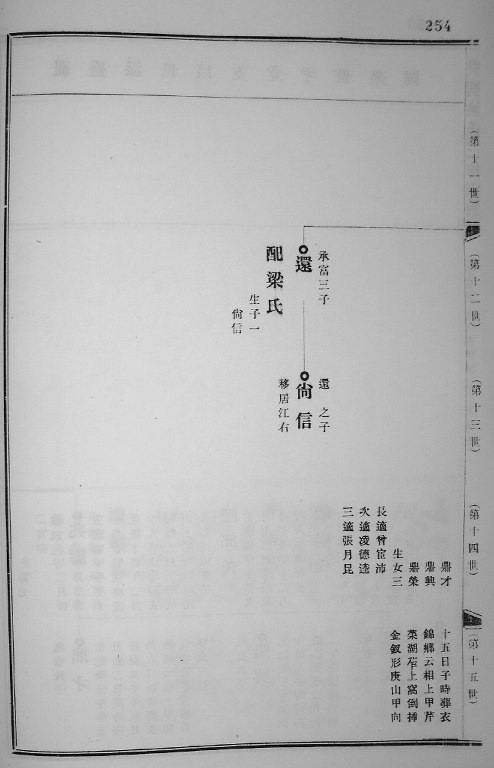 254
（第十一世）
（第十二世）
（第十三世）
（第十四世）
（第十五世）
承富三子
還
配梁氏
生子一
尙信
還之子
尙信
移居江右
鼎才
鼎興
鼎榮
生女三
長適曾宦沛
次適凌德逵
三適張月昆
十五日子時葬衣
錦鄉云相上甲芹
菜湖 上窩倒揷
金釵形庚山甲向